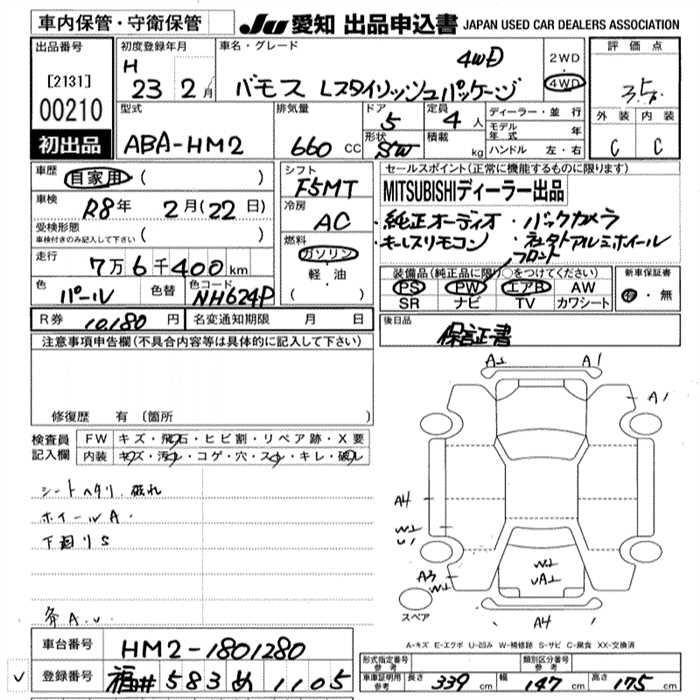 車内保管・守衛保管
JU 愛知 出品申込書 JAPAN USED CAR DEALERS ASSOCIATION
出品番号
[2131]
00210
初出品
初度登録年月
H 23 2月
車名・グレード
4WD
バモス Lスタイリッシュパッケージ
2WD
4WD
評価点
3.5
外装 内装
C C
型式
ABA-HM2
排気量
660 CC
ドア
5
形状
SW
定員
4人
積載
kg
ディーラー・並行
モデル年式 年
ハンドル 左・右
車歴 自家用 ( )
車検 R8年 2月(22日)
受検形態
車検付きのみ記入して下さい ( )
走行
7万6千400km
色 パール 色替 色コード NH624P
シフト
F5MT
冷房
AC
燃料
ガソリン
軽・油
( )
セールスポイント(正常に機能するものに限ります)
MITSUBISHIディーラー出品
・純正オーディオ ・バックカメラ
・キーレスリモコン ・社外アルミホイール
フロント
装備品(純正品に限り○をつけてください)
PS PW エアB AW
SR ナビ TV カワシート
新車保証書
有・無
R券 10,180円 名変通知期限 月 日
後日品
保証書
注意事項申告欄(不具合内容等は具体的に記入して下さい)
修復歴 有 (箇所
検査員記入欄
FW キズ・飛石・ヒビ割・リペア跡・X要
内装 キズ・汚れ・コゲ・穴・スレ・キレ・破れ
シートヘタリ、破れ
ホイールA.
下廻りS
各A.U.
A2 A1
A1
A4
W2
U1
W2
UA2
A3
W2
A4
スペア
A-キズ E-エクボ U-凹み W-補修跡 S-サビ C-腐食 XX-交換済
車台番号 HM2-1801280
登録番号 福井 583 め 1105
形式指定番号 参考
類別区分番号 参考
車庫証明用 参考 長さ 339cm 幅 147cm 高さ 175cm